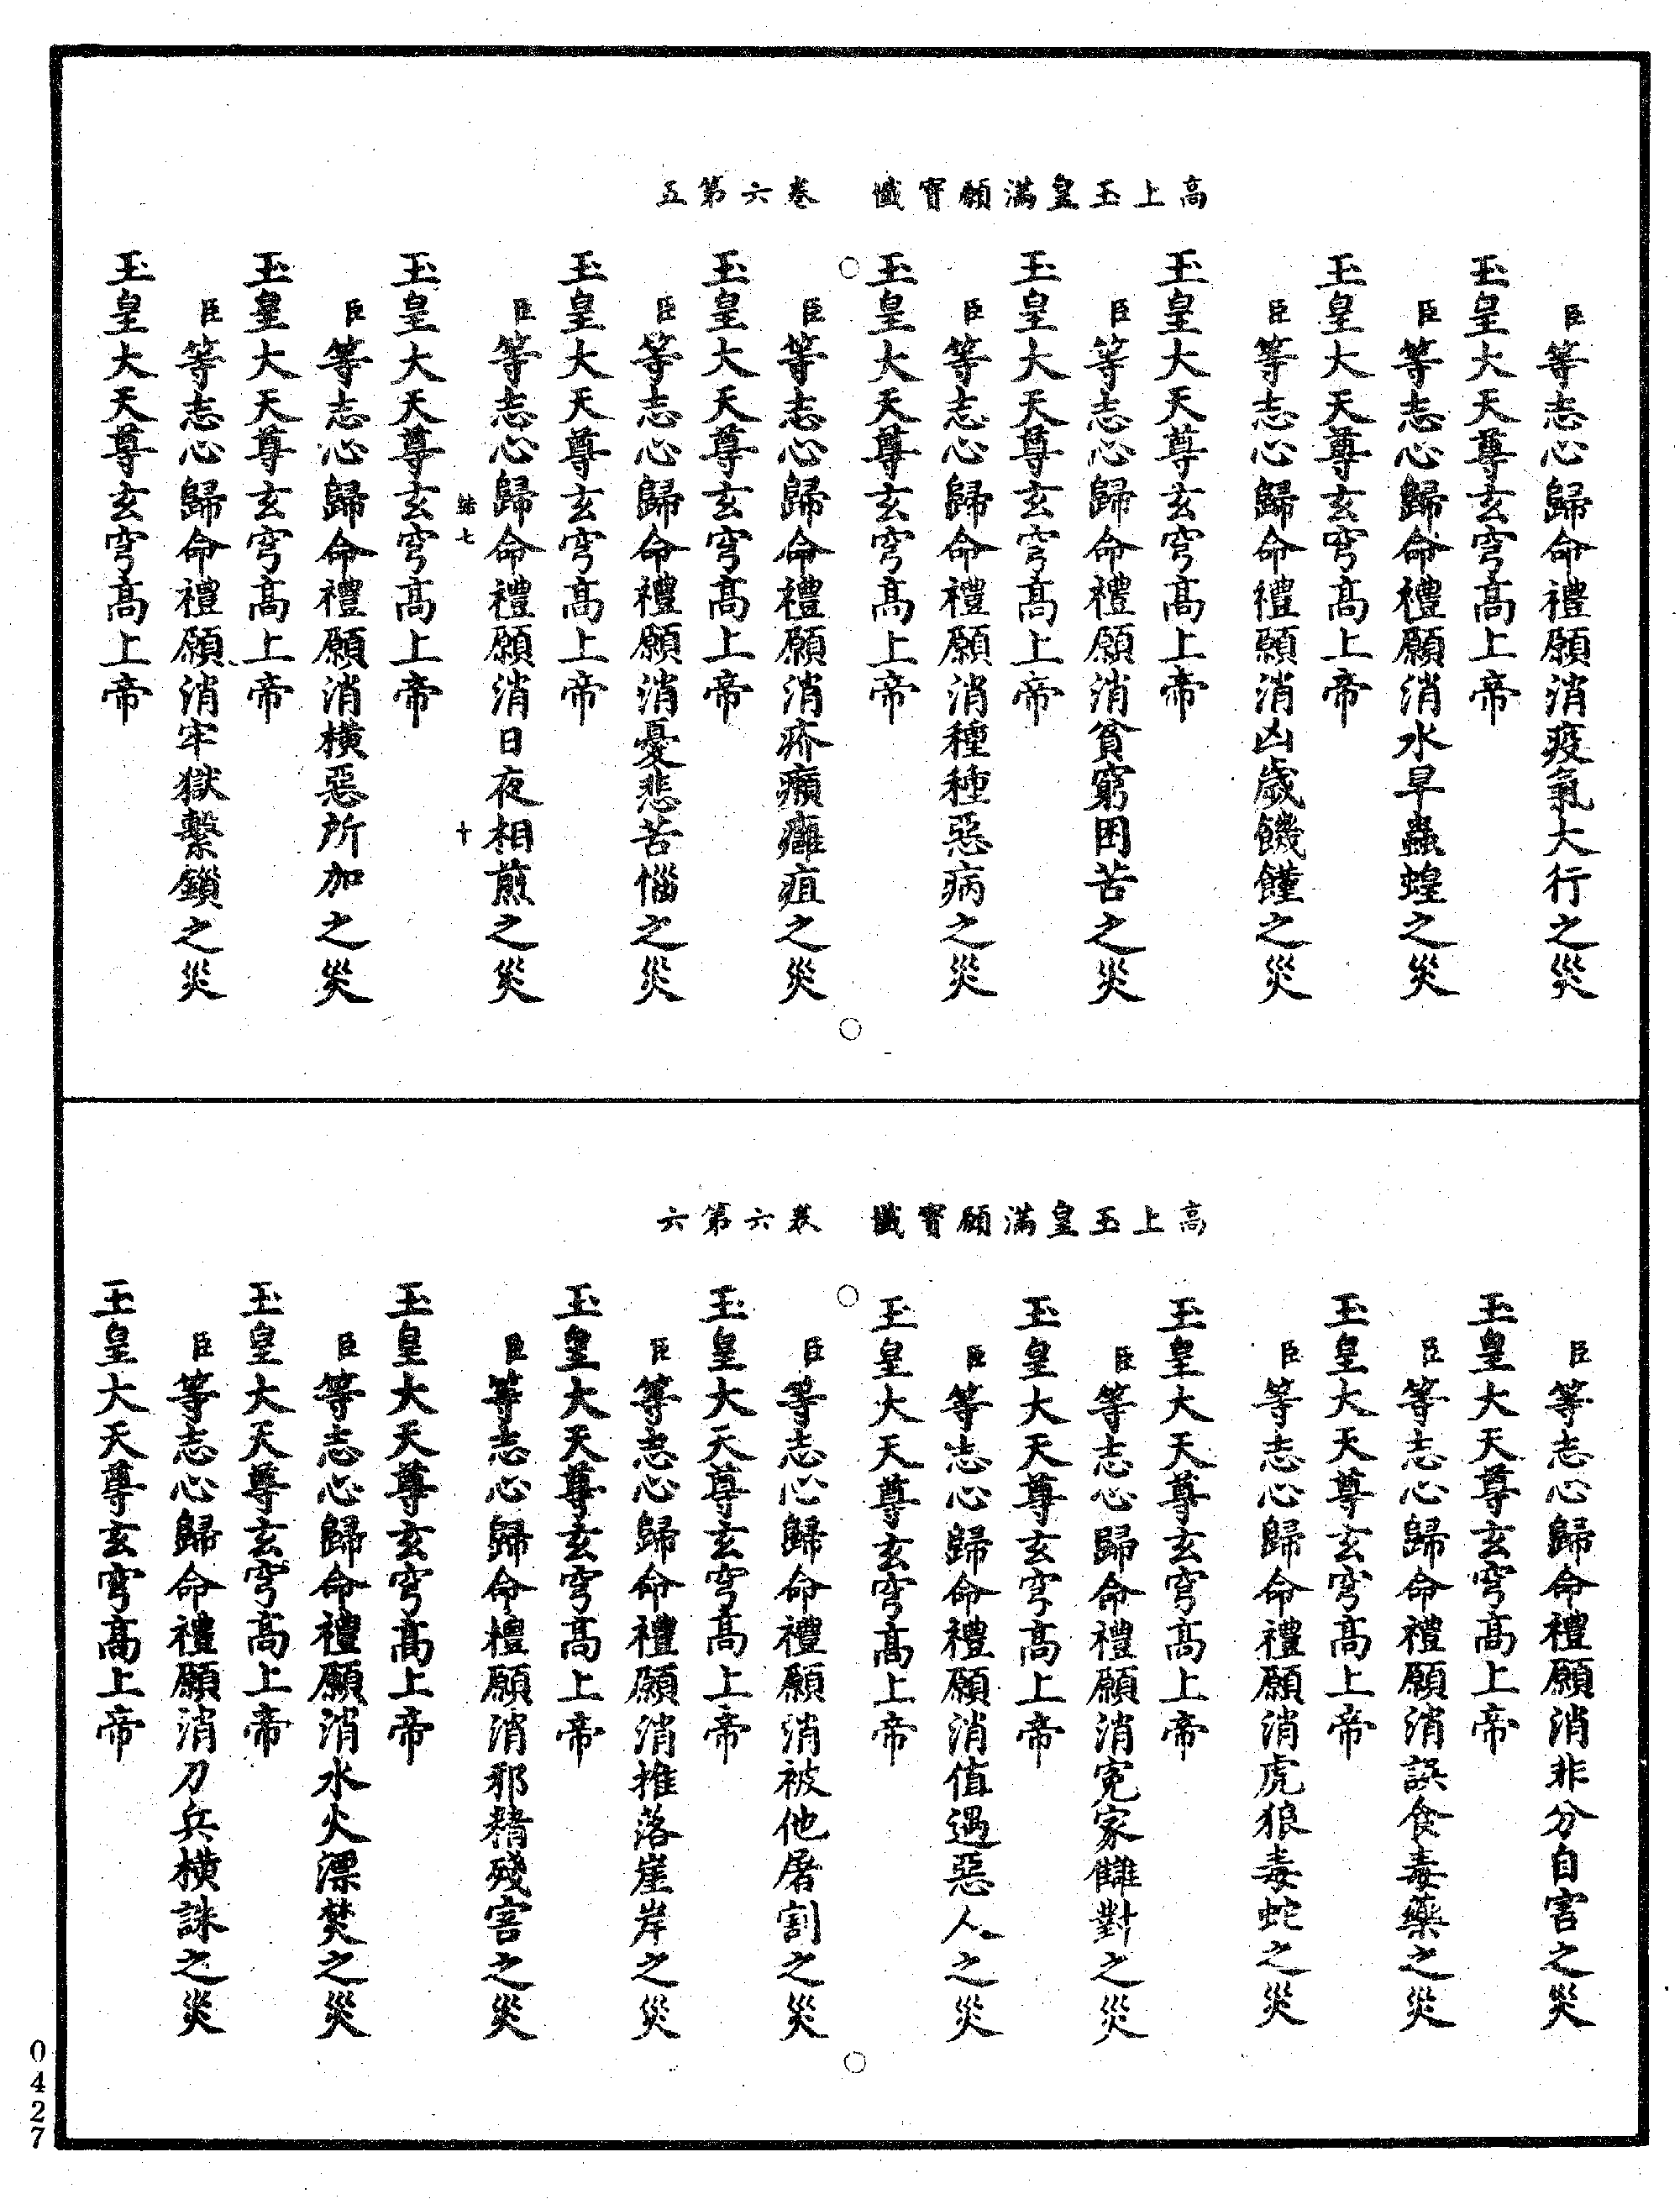 高上玉皇滿願寶懺　卷六第五
臣等志心歸命禮願消疫氣大行之災
玉皇大天尊玄穹高上帝
臣等志心歸命禮願消水旱蟲蝗之災
玉皇大天尊玄穹高上帝
臣等志心歸命禮願消凶歲饑饉之災
玉皇大天尊玄穹高上帝
臣等志心歸命禮願消貧窮困苦之災
玉皇大天尊玄穹高上帝
臣等志心歸命禮願消種種惡病之災
玉皇大天尊玄穹高上帝
臣等志心歸命禮願消疥癩癰疽之災
玉皇大天尊玄穹高上帝
臣等志心歸命禮願消憂悲苦惱之災
玉皇大天尊玄穹高上帝
臣等志心歸命禮願消日夜相煎之災
七　十
玉皇大天尊玄穹高上帝
臣等志心歸命禮願消橫惡所加之災
玉皇大天尊玄穹高上帝
臣等志心歸命禮願消牢獄繫鎖之災
玉皇大天尊玄穹高上帝
高上玉皇滿願寶懺　卷六第六
臣等志心歸命禮願消非分自害之災
玉皇大天尊玄穹高上帝
臣等志心歸命禮願消誤食毒藥之災
玉皇大天尊玄穹高上帝
臣等志心歸命禮願消虎狼毒蛇之災
玉皇大天尊玄穹高上帝
臣等志心歸命禮願消冤家讎對之災
玉皇大天尊玄穹高上帝
臣等志心歸命禮願消值遇惡人之災
玉皇大天尊玄穹高上帝
臣等志心歸命禮願消被他屠割之災
玉皇大天尊玄穹高上帝
臣等志心歸命禮願消推落崖岸之災
玉皇大天尊玄穹高上帝
臣等志心歸命禮願消邪精殘害之災
玉皇大天尊玄穹高上帝
臣等志心歸命禮願消水火漂焚之災
玉皇大天尊玄穹高上帝
臣等志心歸命禮願消刀兵橫誅之災
玉皇大天尊玄穹高上帝
0427